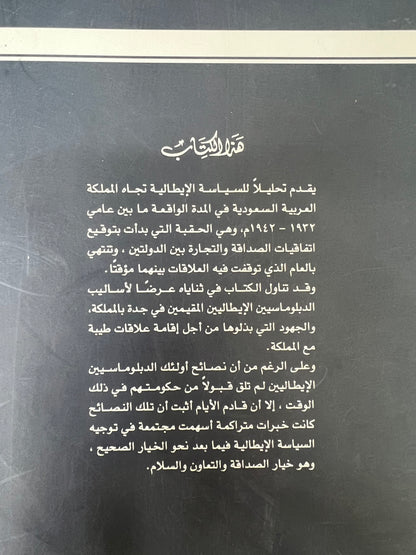 هَذَا الكِتَابُ
يقدم تحليلاً للسياسة الإيطالية تجاه المملكة
العربية السعودية في المدة الواقعة ما بين عامي
١٩٣٢ - ١٩٤٢م، وهي الحقبة التي بدأت بتوقيع
اتفاقيات الصداقة والتجارة بين الدولتين ، وتنتهي
بالعام الذي توقفت فيه العلاقات بينهما مؤقتًا.
وقد تناول الكتاب في ثناياه عرضًا لأساليب
الدبلوماسيين الإيطاليين المقيمين في جدة بالمملكة،
والجهود التي بذلوها من أجل إقامة علاقات طيبة
مع المملكة.
وعلى الرغم من أن نصائح أولئك الدبلوماسيين
الإيطاليين لم تلق قبولاً من حكومتهم في ذلك
الوقت ، إلا أن قادم الأيام أثبت أن تلك النصائح
كانت خبرات متراكمة أسهمت مجتمعة في توجيه
السياسة الإيطالية فيما بعد نحو الخيار الصحيح ،
وهو خيار الصداقة والتعاون والسلام.